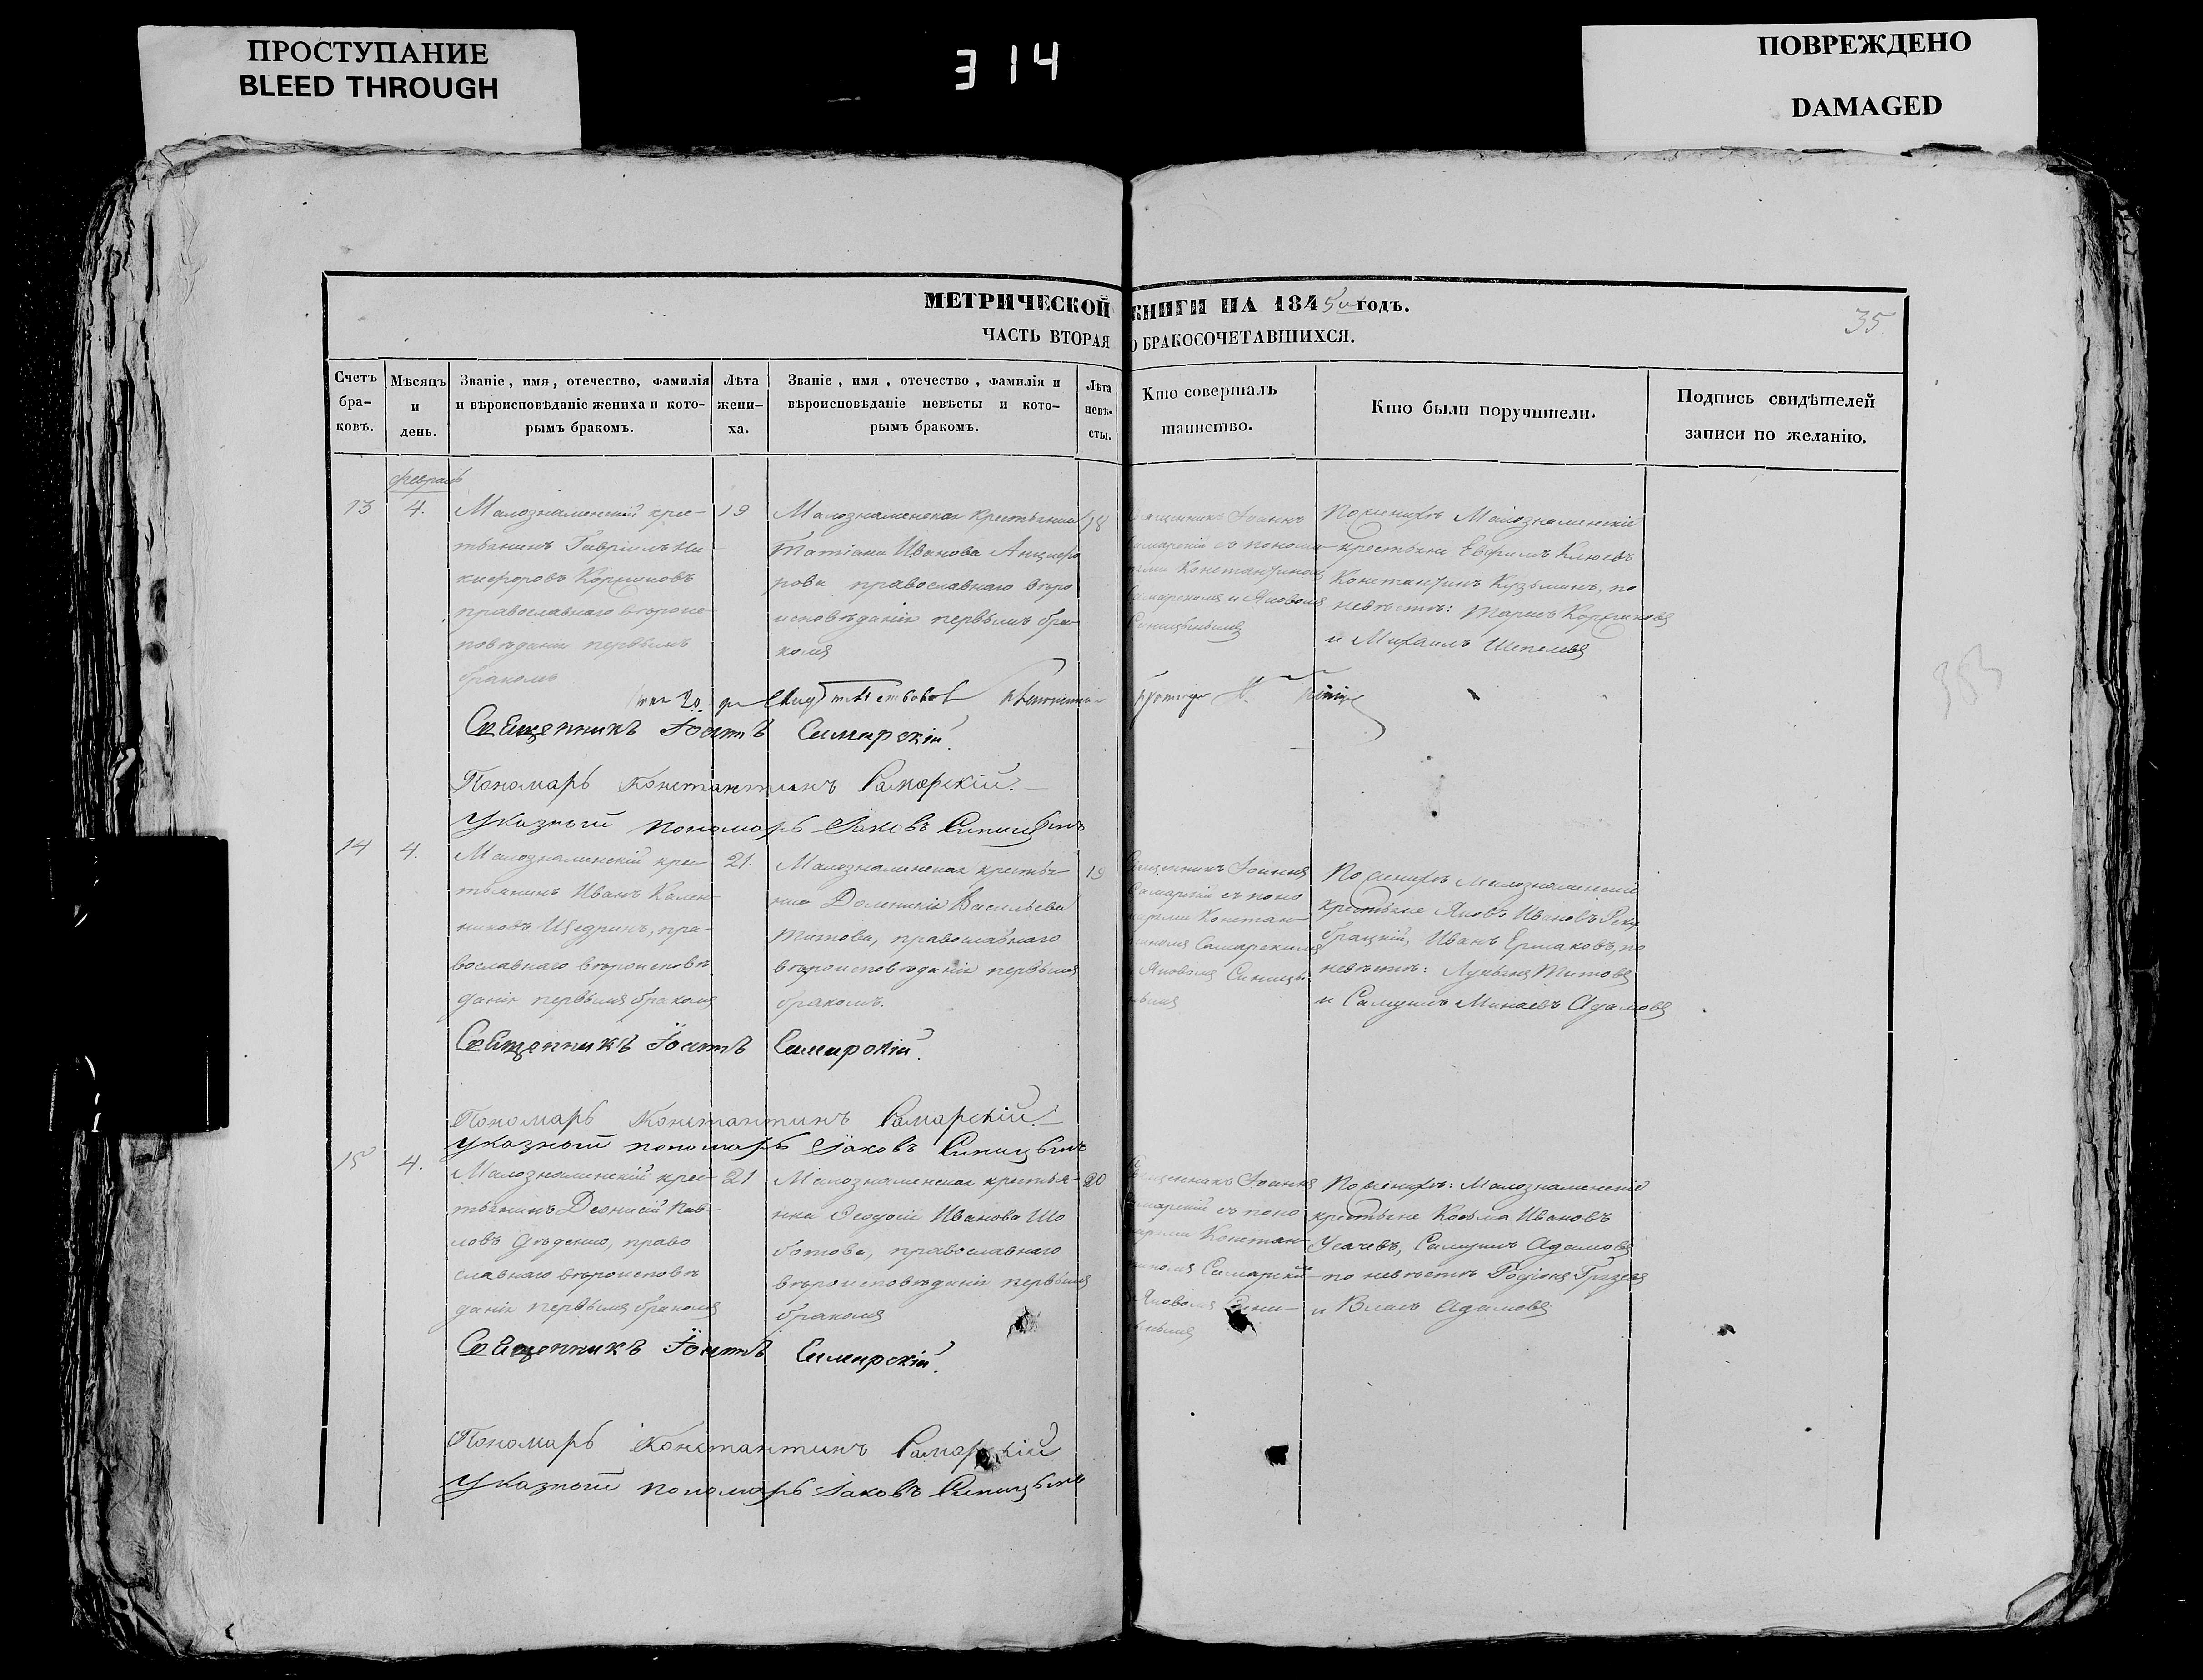 ПРОСТУПАНИЕ
BLEED THROUGH
314
ПОВРЕЖДЕНО
DAMAGED
МЕТРИЧЕСКОЙ КНИГИ НА 1845й годъ.
35.
ЧАСТЬ ВТОРАЯ О БРАКОСОЧЕТАВШИХСЯ.
Счетъ бра-ковъ.
Мѣсяцъ и день.
Званіе, имя, отечество, фамилія
и вѣроисповѣданіе жениха и кото-
рымъ бракомъ.
Лѣта жени-ха.
Званіе, имя, отечество, фамилія и
вѣроисповѣданіе невѣсты и кото-
рымъ бракомъ.
Лѣта невѣ-сты.
Кто совершалъ
таинство.
Кто были поручители.
Подпись свидѣтелей
записи по желанію.
февраль
13
4.
Малознаменскій крес-
тьянинъ Гавріилъ Ни-
кифоровъ
православнаго вѣроис-
повѣданія первымъ
бракомъ
19
Малознаменская крестьянка
Татіана Иванова Анциферо
рова православнаго вѣро
исповѣданія первымъ бра-
комъ
18
Священникъ Іоаннъ
Самарскій съ понома-
рями Константиномъ
Самарскимъ и Яковомъ
Синицынымъ
По женихѣ Малознаменскіе
крестьяне Евфимъ Клюевъ
Константинъ Кузьминъ, по
невѣстѣ:
и Михаилъ Шепелевъ
Священникъ Іоаннъ Самарскій.
Пономарь Константинъ Самарскій.
Указный пономарь Іаковъ Синицынъ
14
4.
Малознаменскій крес-
тьянинъ Иванъ Кален-
никовъ Щедринъ, пра-
вославнаго вѣроисповѣ
данія первымъ бракомъ
21.
Малознаменская крестья-
нка Домникія Васильева
Титова, православнаго
вѣроисповѣданія первымъ
бракомъ.
19
Священникъ Іоаннъ
Самарскій съ поно
марями Констан-
тиномъ Самарскимъ
и Яковомъ Синицы
нымъ
По женихѣ Малознаменскіе
крестьяне Яковъ Ивановъ
Иванъ Ермаковъ, по
невѣстѣ: Лукьянъ Титовъ
и Самуилъ Минаевъ Адамовъ
Священникъ Іоаннъ Самарскій.
Пономарь Константинъ Самарскій.
Указный пономарь Іаковъ Синицынъ
15
4.
Малознаменскій крес-
тьянинъ Діонисій Пав-
ловъ Дѣденко, право
славнаго вѣроисповѣ
данія первымъ бракомъ
21
Малознаменская крестья-
нка Феодосія Иванова Шо
ботова, православнаго
вѣроисповѣданія первымъ
бракомъ
20
Священникъ Іоаннъ
Самарскій съ поно
марями Констан-
тиномъ Самарскимъ
и Яковомъ Сини-
цынымъ
По женихѣ: Малознаменскіе
крестьяне Козьма Ивановъ
Усачевъ, Самуилъ Адамовъ
по невѣстѣ Родіонъ
и Власъ Адамовъ
Священникъ Іоаннъ Самарскій.
Пономарь Константинъ Самарскій
Указный пономарь Іаковъ Синицынъ